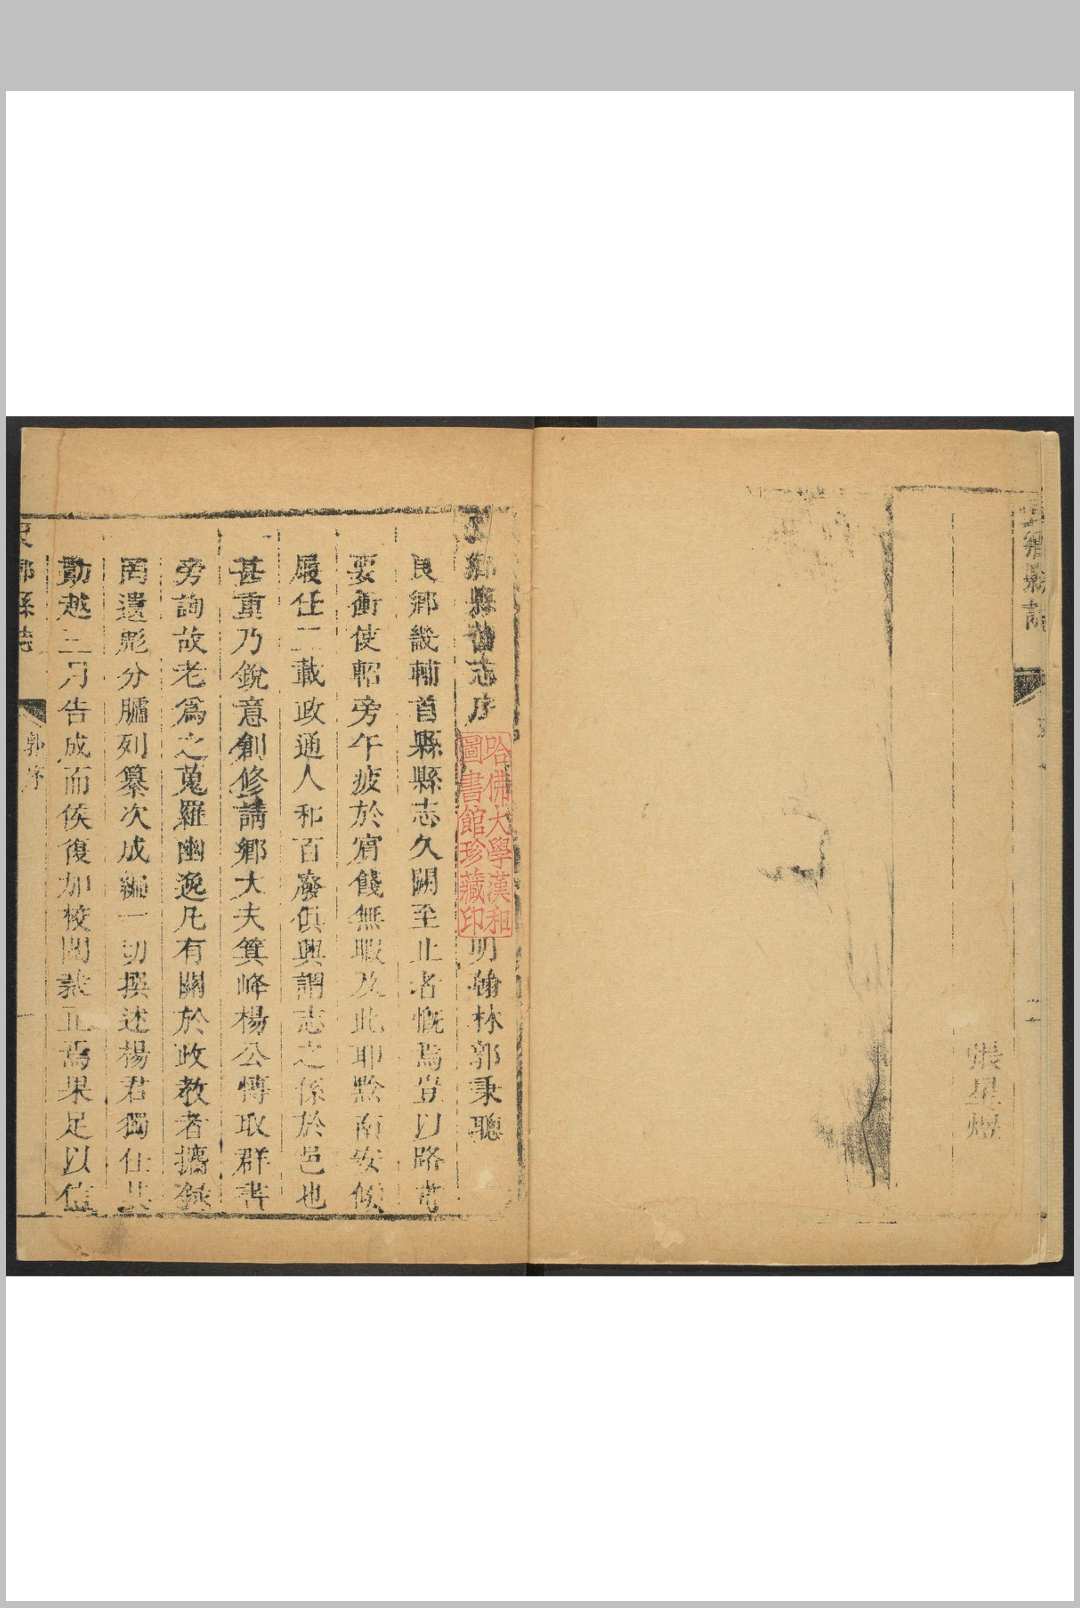 良鄉縣誌
張星煜
良鄉縣舊志序
明翰林郭秉聰
哈佛大學漢和
圖書館珍藏印
良鄉畿輔首縣縣志久闕至止者慨焉豈以路當
要衝使軺旁午疲於廚餞無暇及此耶黔南安候
履任二載政通人和百廢俱興謂志之係於邑也
甚重乃銳意創修請鄉大夫箕峰楊公博取群書
旁詢故老爲之蒐羅幽逸凡有關於政教者擕錄
罔遺彪分臚列纂次成編一切撰述楊君獨任其
勤越三月告成而侯復加校閱裁正焉果足以信
良鄉縣誌
郭序
一